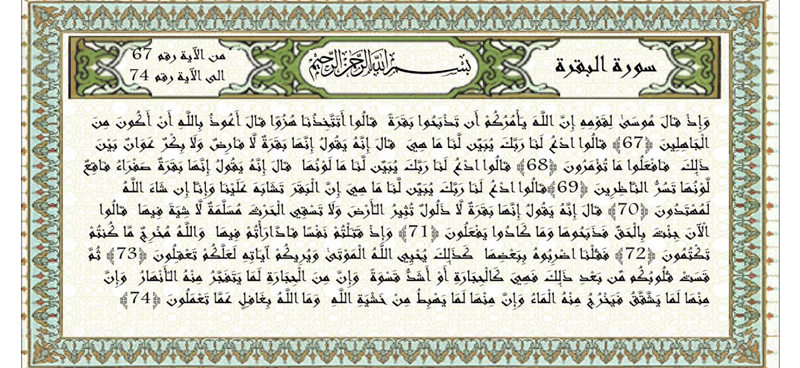 سورة البقرة
بسم الله الرحمن الرحيم
من الآية رقم 67
الى الآية رقم 74
وَإِذْ قَالَ مُوسَىٰ لِقَوْمِهِ إِنَّ اللَّهَ يَأْمُرُكُمْ أَن تَذْبَحُوا بَقَرَةً قَالُوا أَتَتَّخِذُنَا هُزُوًا قَالَ أَعُوذُ بِاللَّهِ أَنْ أَكُونَ مِنَ
الْجَاهِلِينَ ﴿67﴾ قَالُوا ادْعُ لَنَا رَبَّكَ يُبَيِّن لَّنَا مَا هِيَ قَالَ إِنَّهُ يَقُولُ إِنَّهَا بَقَرَةٌ لَّا فَارِضٌ وَلَا بِكْرٌ عَوَانٌ بَيْنَ
ذَٰلِكَ فَافْعَلُوا مَا تُؤْمَرُونَ ﴿68﴾ قَالُوا ادْعُ لَنَا رَبَّكَ يُبَيِّن لَّنَا مَا لَوْنُهَا قَالَ إِنَّهُ يَقُولُ إِنَّهَا بَقَرَةٌ صَفْرَاءُ فَاقِعٌ
لَّوْنُهَا تَسُرُّ النَّاظِرِينَ ﴿69﴾قَالُوا ادْعُ لَنَا رَبَّكَ يُبَيِّن لَّنَا مَا هِيَ إِنَّ الْبَقَرَ تَشَابَهَ عَلَيْنَا وَإِنَّا إِن شَاءَ اللَّهُ
لَمُهْتَدُونَ ﴿70﴾ قَالَ إِنَّهُ يَقُولُ إِنَّهَا بَقَرَةٌ لَّا ذَلُولٌ تُثِيرُ الْأَرْضَ وَلَا تَسْقِي الْحَرْثَ مُسَلَّمَةٌ لَّا شِيَةَ فِيهَا قَالُوا
الْآنَ جِئْتَ بِالْحَقِّ فَذَبَحُوهَا وَمَا كَادُوا يَفْعَلُونَ ﴿71﴾ وَإِذْ قَتَلْتُمْ نَفْسًا فَادَّارَأْتُمْ فِيهَا وَاللَّهُ مُخْرِجٌ مَّا كُنتُمْ
تَكْتُمُونَ ﴿72﴾ فَقُلْنَا اضْرِبُوهُ بِبَعْضِهَا كَذَٰلِكَ يُحْيِي اللَّهُ الْمَوْتَىٰ وَيُرِيكُمْ آيَاتِهِ لَعَلَّكُمْ تَعْقِلُونَ ﴿73﴾ ثُمَّ
قَسَتْ قُلُوبُكُم مِّن بَعْدِ ذَٰلِكَ فَهِيَ كَالْحِجَارَةِ أَوْ أَشَدُّ قَسْوَةً وَإِنَّ مِنَ الْحِجَارَةِ لَمَا يَتَفَجَّرُ مِنْهُ الْأَنْهَارُ وَإِنَّ
مِنْهَا لَمَا يَشَّقَّقُ فَيَخْرُجُ مِنْهُ الْمَاءُ وَإِنَّ مِنْهَا لَمَا يَهْبِطُ مِنْ خَشْيَةِ اللَّهِ وَمَا اللَّهُ بِغَافِلٍ عَمَّا تَعْمَلُونَ ﴿74﴾